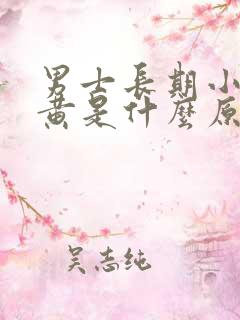 男士長期小
黃是什麼原
吴志纯